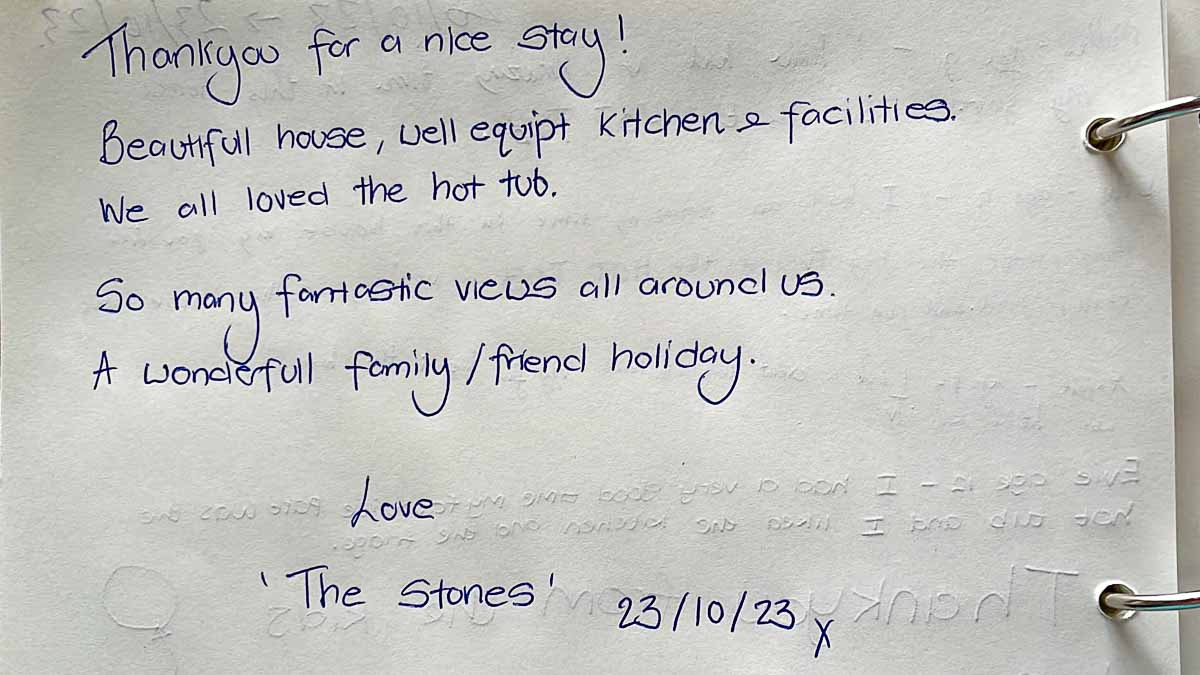 Thankyou for a nice stay!
Beautifull house, well equipt kitchen & facilities.
We all loved the hot tub.
So many fantastic views all around us.
A wonderfull family/friend holiday.
Love
'The Stones' 23/10/23 x